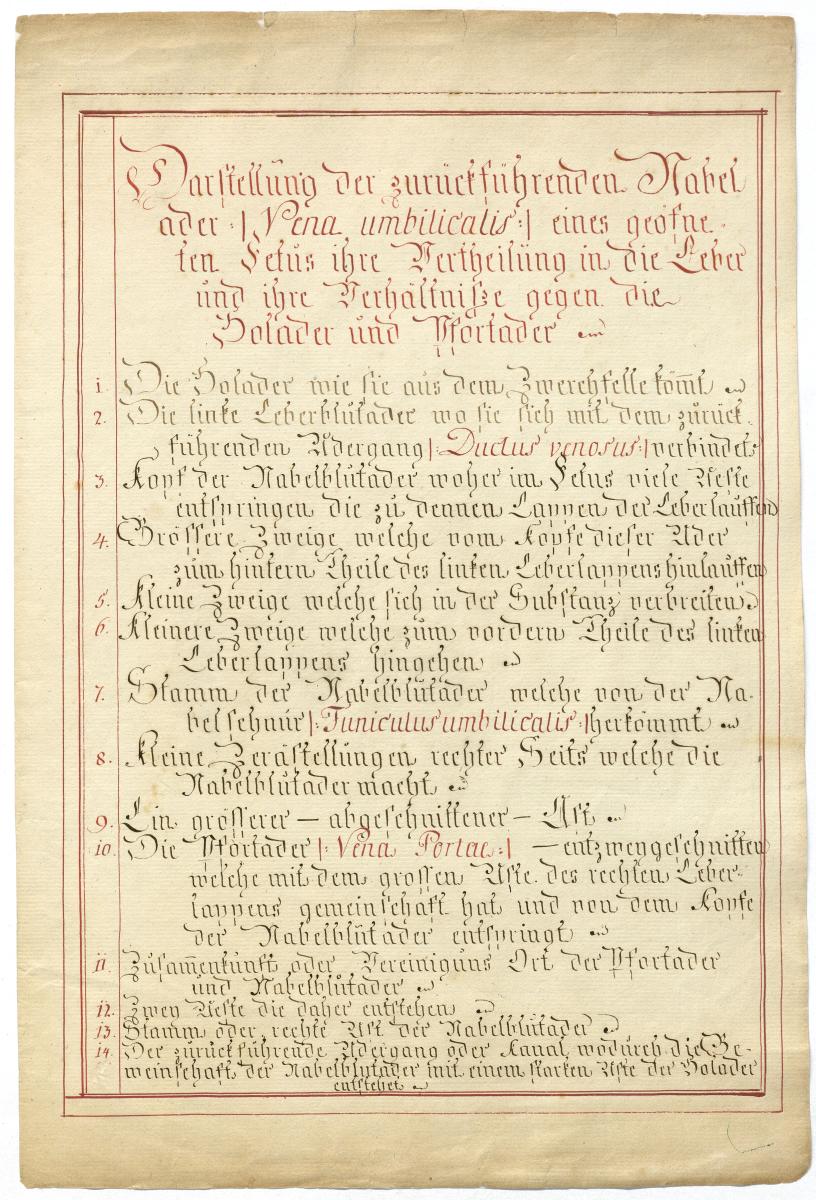 Darstellüng der zurückführenden Nabel
ader :| Vena umbilicalis :| eines geöfne-
ten Fetüs ihre Vertheilüng in die Leber
ünd ihre Verhältniße gegen die
Holader ünd Pfortader
1. Die Holader wie sie aüs dem Zwerchfelle köm̄t
2. Die linke Leberblütader wo sie sich mit dem zürück-
führenden Adergang |: Ductus venosus :| verbindet
3. Kopf der Nabelblütader woher im Fetus viele Aeste
entspringen die zü dennen Lappen der Leber lauffen
4. Grössere Zweige welche vom Kopfe dieser Ader
züm hintern Theile des linken Leberlappens hinlaüffen
5. Kleine Zweige welche sich in der Substanz verbreiten
6. Kleinere Zweige welche züm vordern Theile des linken
Leberlappens hingehen
7. Stamm der Nabelblütader welche von der Na-
belschnür |: Funiculus umbilicalis :| herkömmt
8. Kleine Zerästellüngen rechter Seits welche die
Nabelblütader macht
9. Ein grösserer — abgeschnittener — Ast
10. Die Pfortader |: Vena Portae :| — entzweygeschnitten
welche mit dem grossen Aste des rechten Leber-
lappens gemeinschaft hat und von dem Kopfe
der Nabelblütader entspringt
11. Züsam̄enkunft oder Vereinigüns Ort der Pfortader
und Nabelblütader
12. Zwey Aeste die daher entstehen
13. Stamm oder rechte Ast der Nabelblütader
14. Der zürückführende Adergang oder Kanal wodürch die Ge-
meinschaft der Nabelblütader mit einem starken Aste der Holader
entstehet